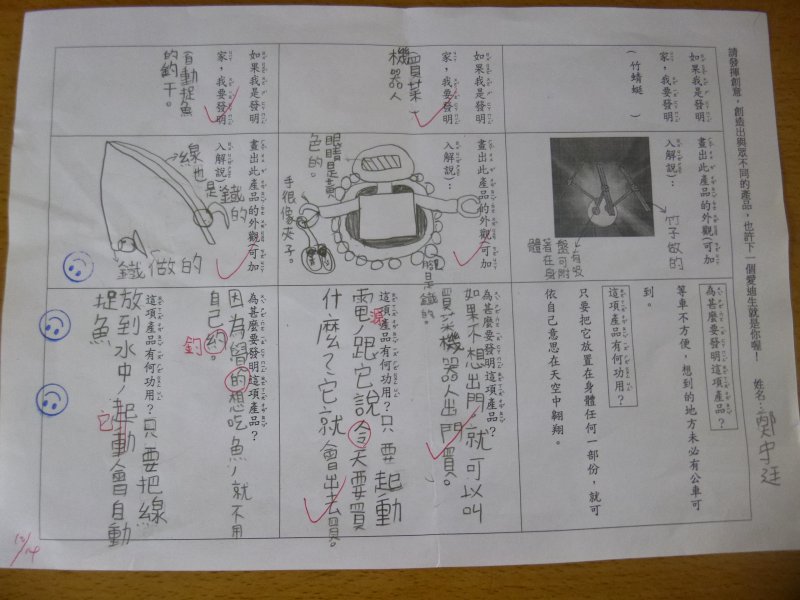 請發揮創意，創造出與眾不同的產品，也許下一個愛迪生就是你喔！
姓名：鄭守廷
如果我是發明
家，我要發明
（竹蜻蜓）
畫出此產品的外觀(可加
入解說)：
竹子做的
有吸
盤可附
著在身
體
為甚麼要發明這項產品？
等車不方便，想到的地方未必有公車可
到。
這項產品有何功用？
只要把它放置在身體任何一部份，就可
依自己意思在天空中翱翔。
如果我是發明
家，我要發明
買菜
機器人
畫出此產品的外觀(可加
入解說)：
眼睛是黃
色的。
手很像夾子。
腳是鐵的。
為甚麼要發明這項產品？
如果不想出門，就可以叫
買菜機器人出門買。
這項產品有何功用？只要起動
電源，跟它說今天要買
什麼，它就會出去買。
如果我是發明
家，我要發明
自動捉魚
的釣干。
畫出此產品的外觀(可加
入解說)：
線也是鐵的
鐵做的
為甚麼要發明這項產品？
因為有的想吃魚，就不用
自己約
釣
這項產品有何功用？只要把線
放到水中，起動它會自動
捉魚
12/14